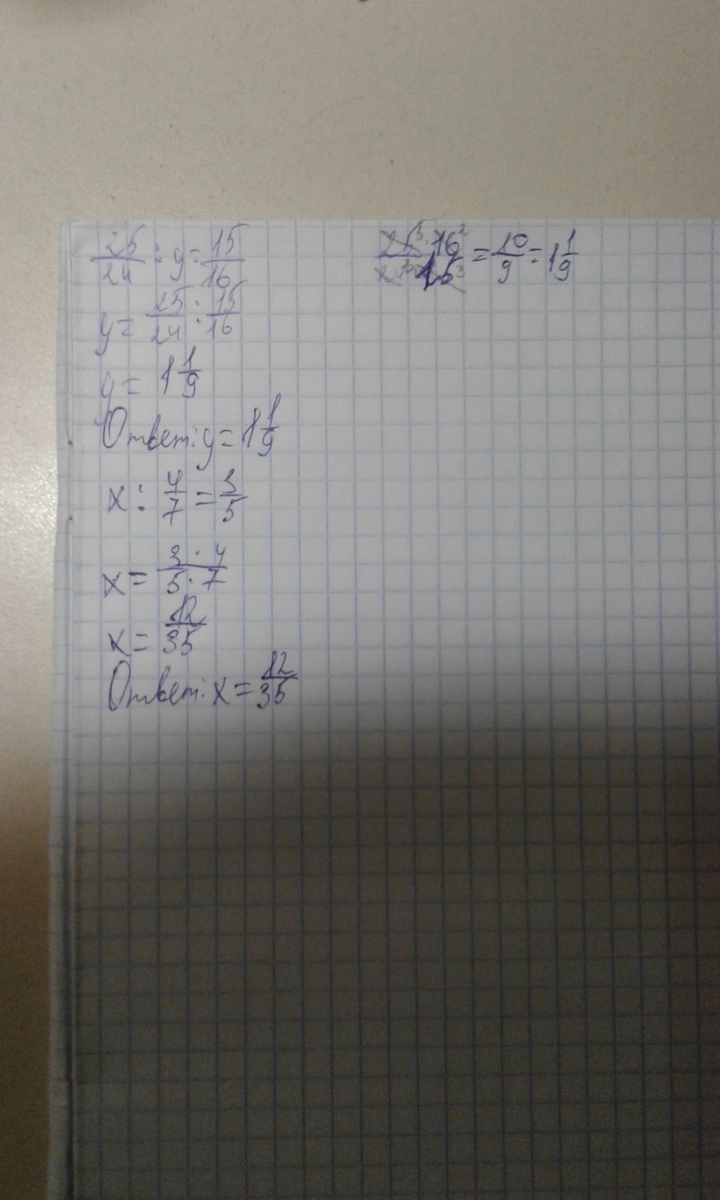 25/24 : y = 15/16
y = 25/24 : 15/16
y = 1 1/9
Ответ: y = 1 1/9
x : 4/7 = 3/5
x = 3 · 4 / 5 · 7
x = 12/35
Ответ: x = 12/35
25⁵ · 16² / 24³ · 15³ = 10/9 = 1 1/9